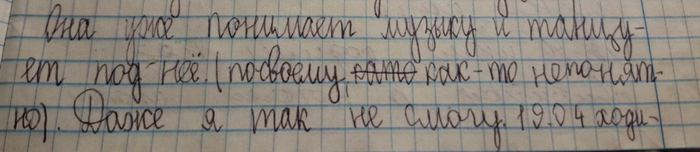 Она уже понимает музыку и танцу-
ет под неё. (посвоему, как-то непонят-
но). Даже я так не смогу. 19.04 ходи-